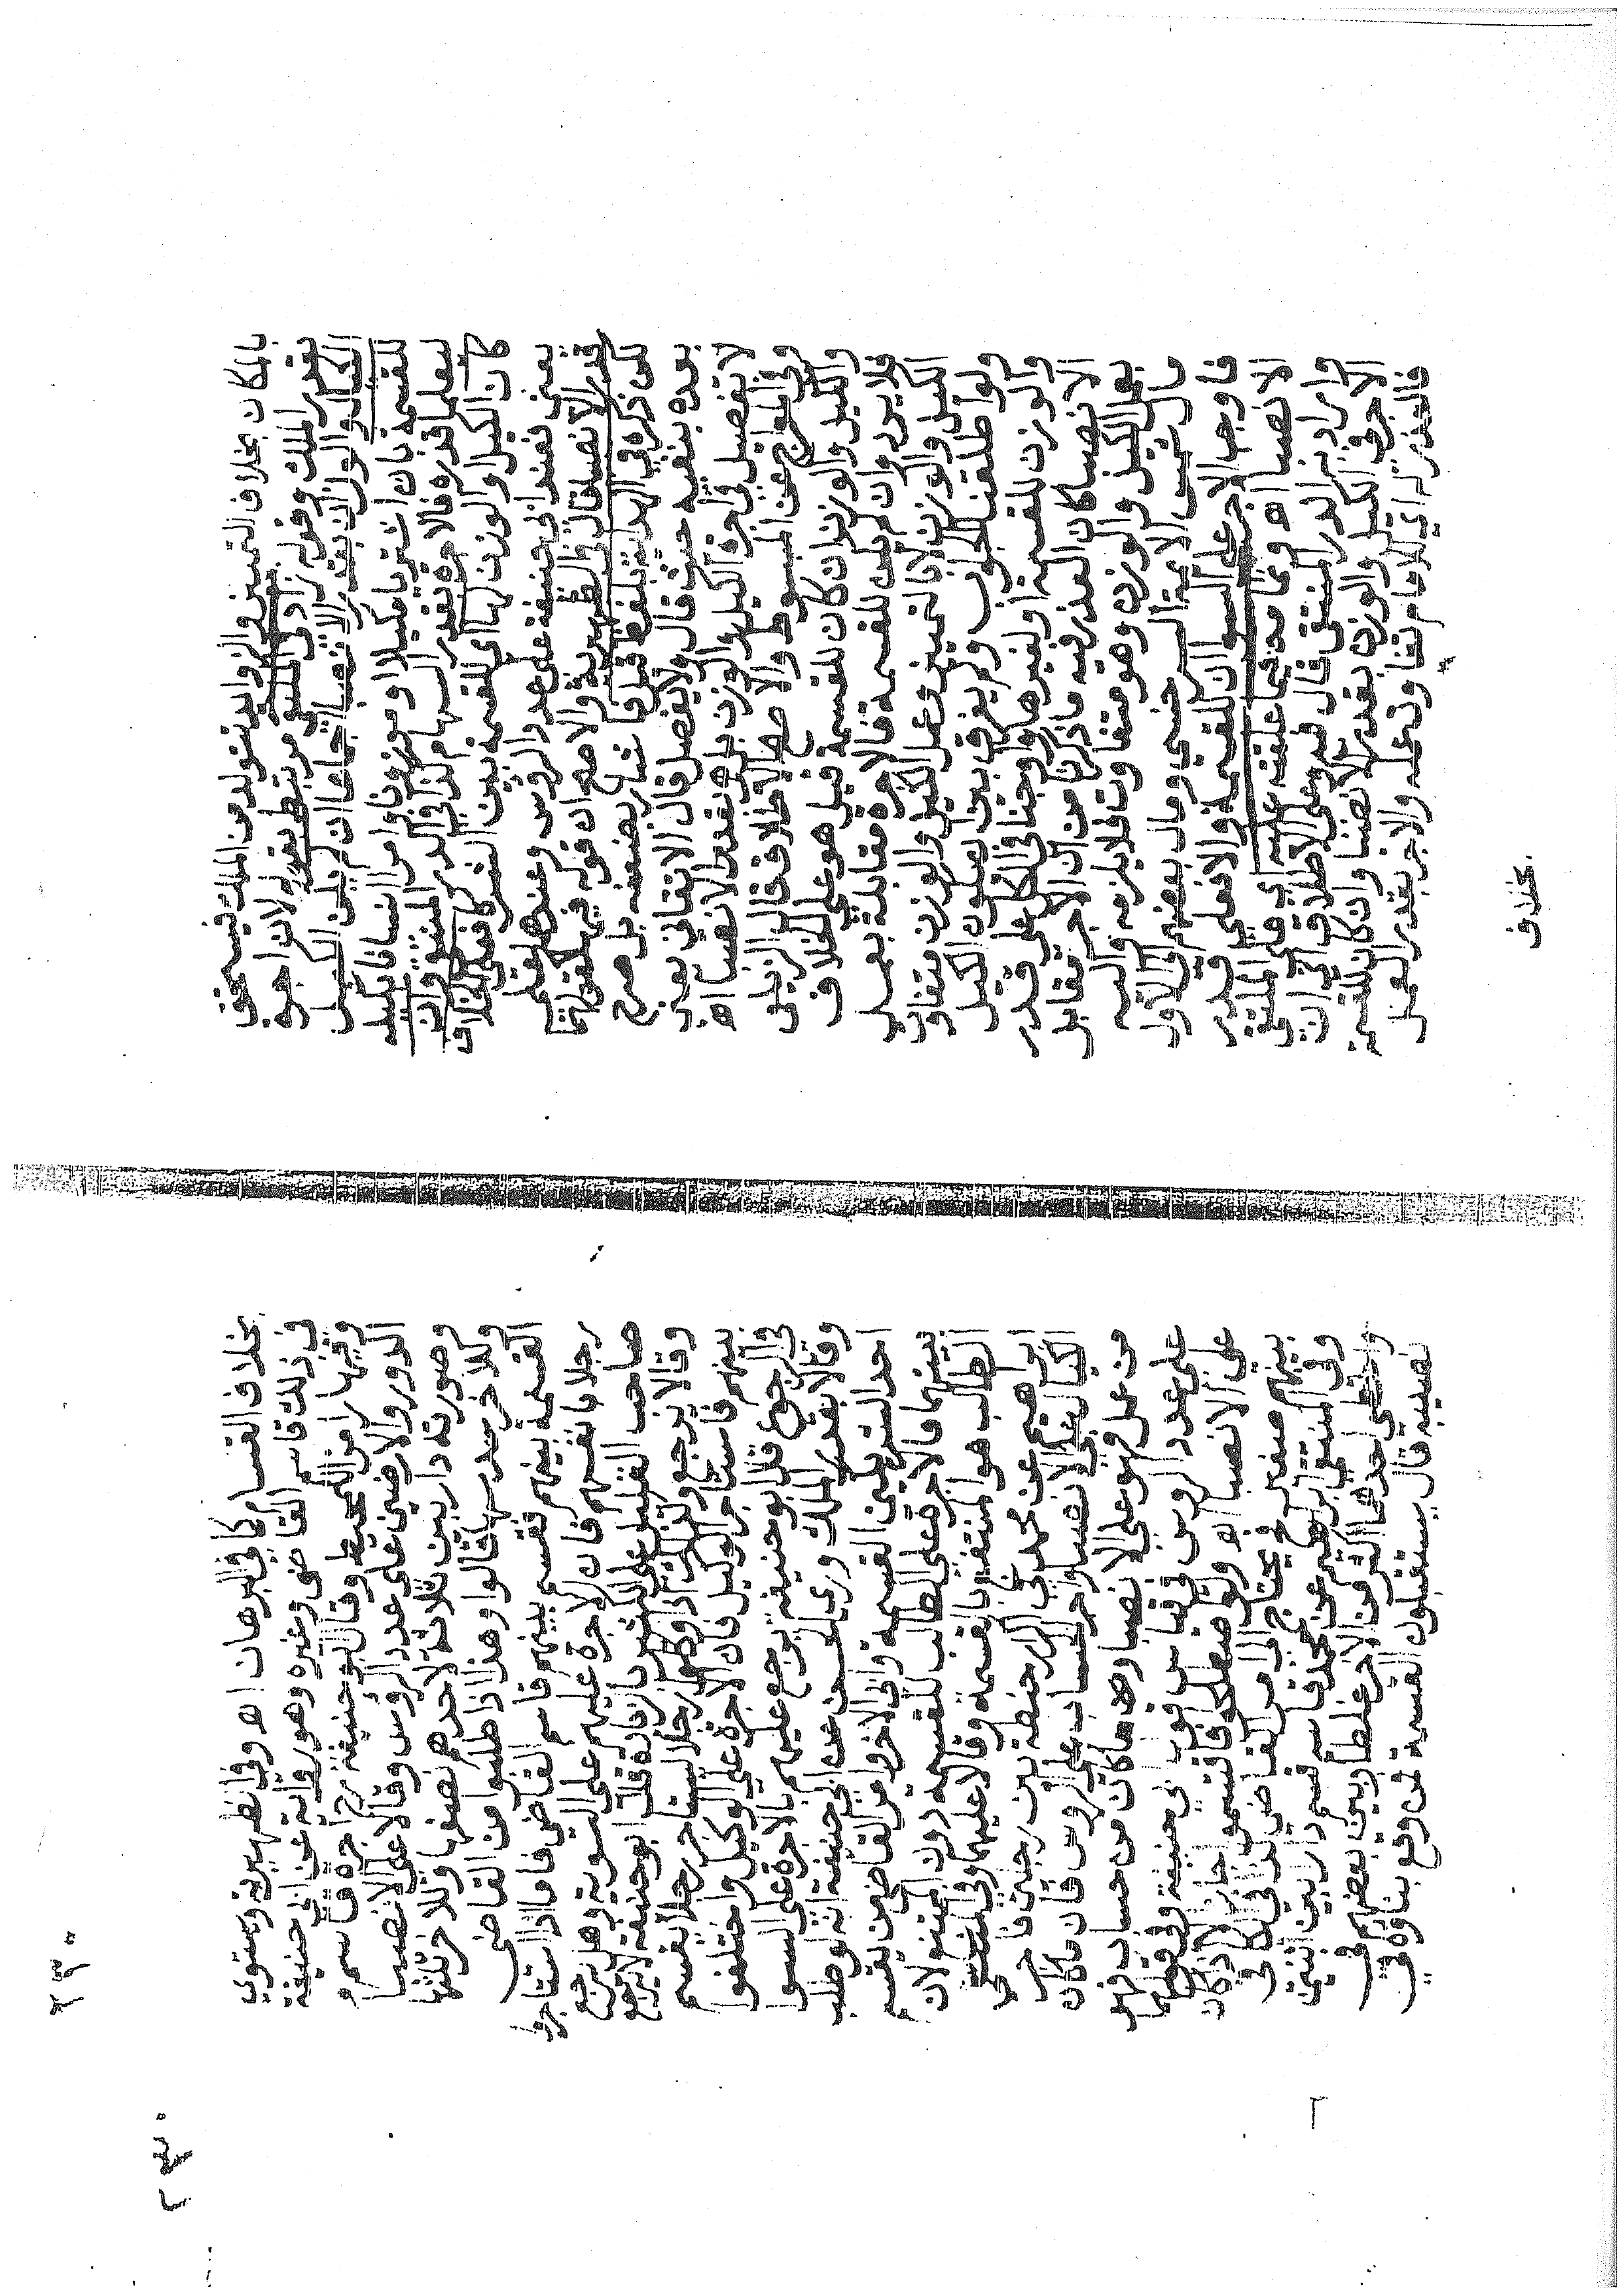 بالمكان بخلاف التمييز والزوايد تتولد من الملك فيستحق
بقدر الملك وقوله زاد في الملتقى مرتبط بقوله لان اجرة
الكيال والوزان بقدر الانصبا اجماعا ان لم يكن الكيل
للقسمة بان اشتريا مكيلا او موزونا وامرا انسانا بكيله
ليعلما قدره فالاجرة بقدر السهام كذا في الدر المنتقى وان
كان الكيل والوزن لها اي للقسمة بين الشركا فعلى الخلاف
يعني فعند ابي حنيفة على عدد الروس وعندهما
قدر الانصبا قال في الظهيرية والاصح ان قوله فيهما كقولهما
لكن ذكره في الهداية بلفظ قيل فاشار بضعفه بل صرح
بعده بنفيه حيث قال ولا يفصل قال الاتقاني يعني
لا تفصيل في اجرة الكيل والوزن بل هو بقدر الانصبا اه
وفي المعراج عن المبسوط والاصح الاطلاق قال الزيلعي
والكيل والوزن ان كان للقسمة قيل هو على الخلاف
فلا يرد وان لم يكن للقسمة فالاجرة مقابلة بعمل
الكيل والوزن لا بالتمييز وعمل الكيل والوزن متفاوت
ولو اطلقنا الجواب ولم يفرق بين ان يكون الكيل
والوزن للقسمة او لغيرها واوجبنا في الكل على قدر
الانصبا كان العذر فيه ما ذكرنا من ان الاجر مقابل
بعمل الكيل والوزن وهو متفاوت فلا يلزمه واليه
مال شمس الايمة السرخسي ومال بعضهم الى الاول
فاوجب الاجر على السوا ان للقسمة والا فعلى قدر
الانصبا اه ومما مر فيما علقته عليه اي في الملتقى
وارا د به الدر المنتقى قال فيه وعلى الاطلاق اي ان
الاجر في الكيل والوزن بقدر الانصبا وان كان للقسمة
فالعذر له اي للامام تفاوت عمله والاجر بقدر العمل
بخلاف
بخلاف القسام كما في البرهان اه وفي الظهيرية ويستوي
في ذلك قاسم القاضي وغيره وهو رواية عن ابي حنيفة
وفيها رامزا للمحيط وقال ابو حنيفة رح اجرة قاسم
الدور والارضين على عدد الرؤس وقالا على الانصبا
وصورته دار بين ثلاثة لاحدهم نصفها وللاخر ثلثها
وللاخر سدسها قالوا وهذا اذا طلبوا من القاضي
القسمة بينهم فقسم بينهم قاسم القاضي فاما اذا استاجروا
رجلا بانفسهم فان الاجرة عليهم على السوية وهل يرجع
صاحب القليل على الكثير بالزيادة قال ابو حنيفة لا يرجع
وقالا يرجع وكذلك اذا وكلوا رجلا ليستاجر رجلا يقسم
بينهم فاستاجر الوكيل فان الاجرة على الوكيل واختلفوا
في الرجوع قال ابو حنيفة يرجع عليهم بالاجرة على السوا
وقالا بقدر الملك وروى الحسن عن ابي حنيفة انه لو طلب
احد الشريكين القسمة وابى الاخر وامر القاضي من يقسم
بينهما فالاجرة على الطالب للقسمة دون الممتنع لان
الطالب هو المنتفع بالقسمة وقالا عليهما وفي المنتقى
ابراهيم عن محمد في اكرار حنطة بين رجلين فاجر
الكيال على الانصبا واجر الحساب على الروس فان ما كان
من عمل فهو على الانصبا وما كان من حساب فهو
على عدد الروس في قياس قول ابي حنيفة وفي قولهما
على الانصبا اه ولو اصطلحوا فاقتسموا جاز الا اذا كان
بينهم صغير فيحتاج الى امر القاضي كذا في الكافي
وفي المنتقى ابراهيم عن محمد قاسم قسم دارا بين اثنين
واعطى احدهما اكثر من الاخر غلطا وبنى بعضهم في
نصيبه قال يستقبلون القسمة فمن وقع بناؤه في
٢٣٠
٢٣٠